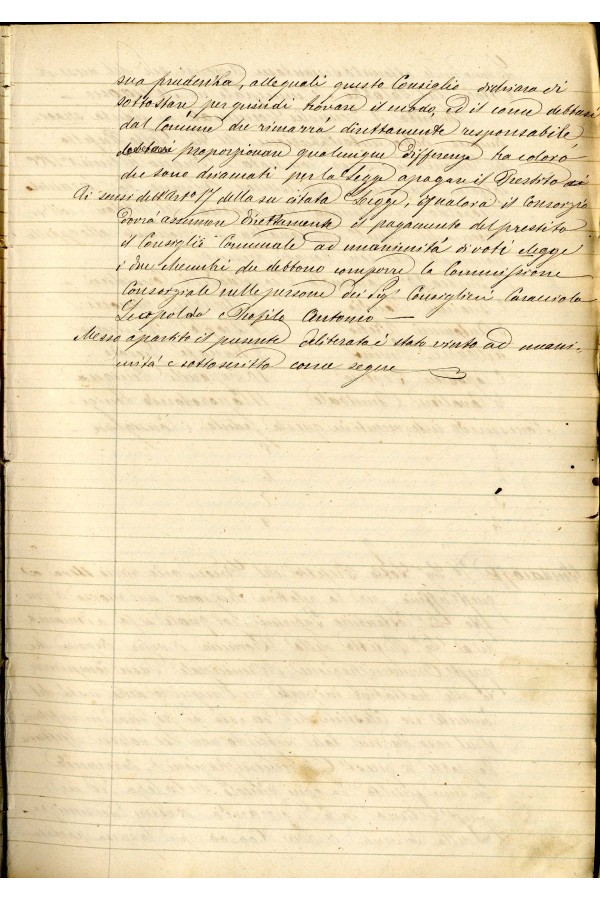 sua prudenza, alle quali questo Consiglio dichiara di
sottostare per quindi trovare il modo, ed il come debbasi
dal Comune che rimarrà direttamente responsabile
proporzionare qualunque differenza tra coloro
che sono chiamati per la legge a pagare il Prestito
Ai sensi dell'Arto 17 della su citata Legge, qualora il Consorzio
dovrà assumere direttamente il pagamento del prestito
il Consiglio Comunale ad unanimità di voti elegge
i due Membri che debbono comporre la Commissione
Consorziale nelle persone dei Sigi Consiglieri Caracciolo
Leopoldo e Profilo Antonio —
Messo a partito il presente deliberato è stato vinto ad unani-
mità e sottoscritto come segue —